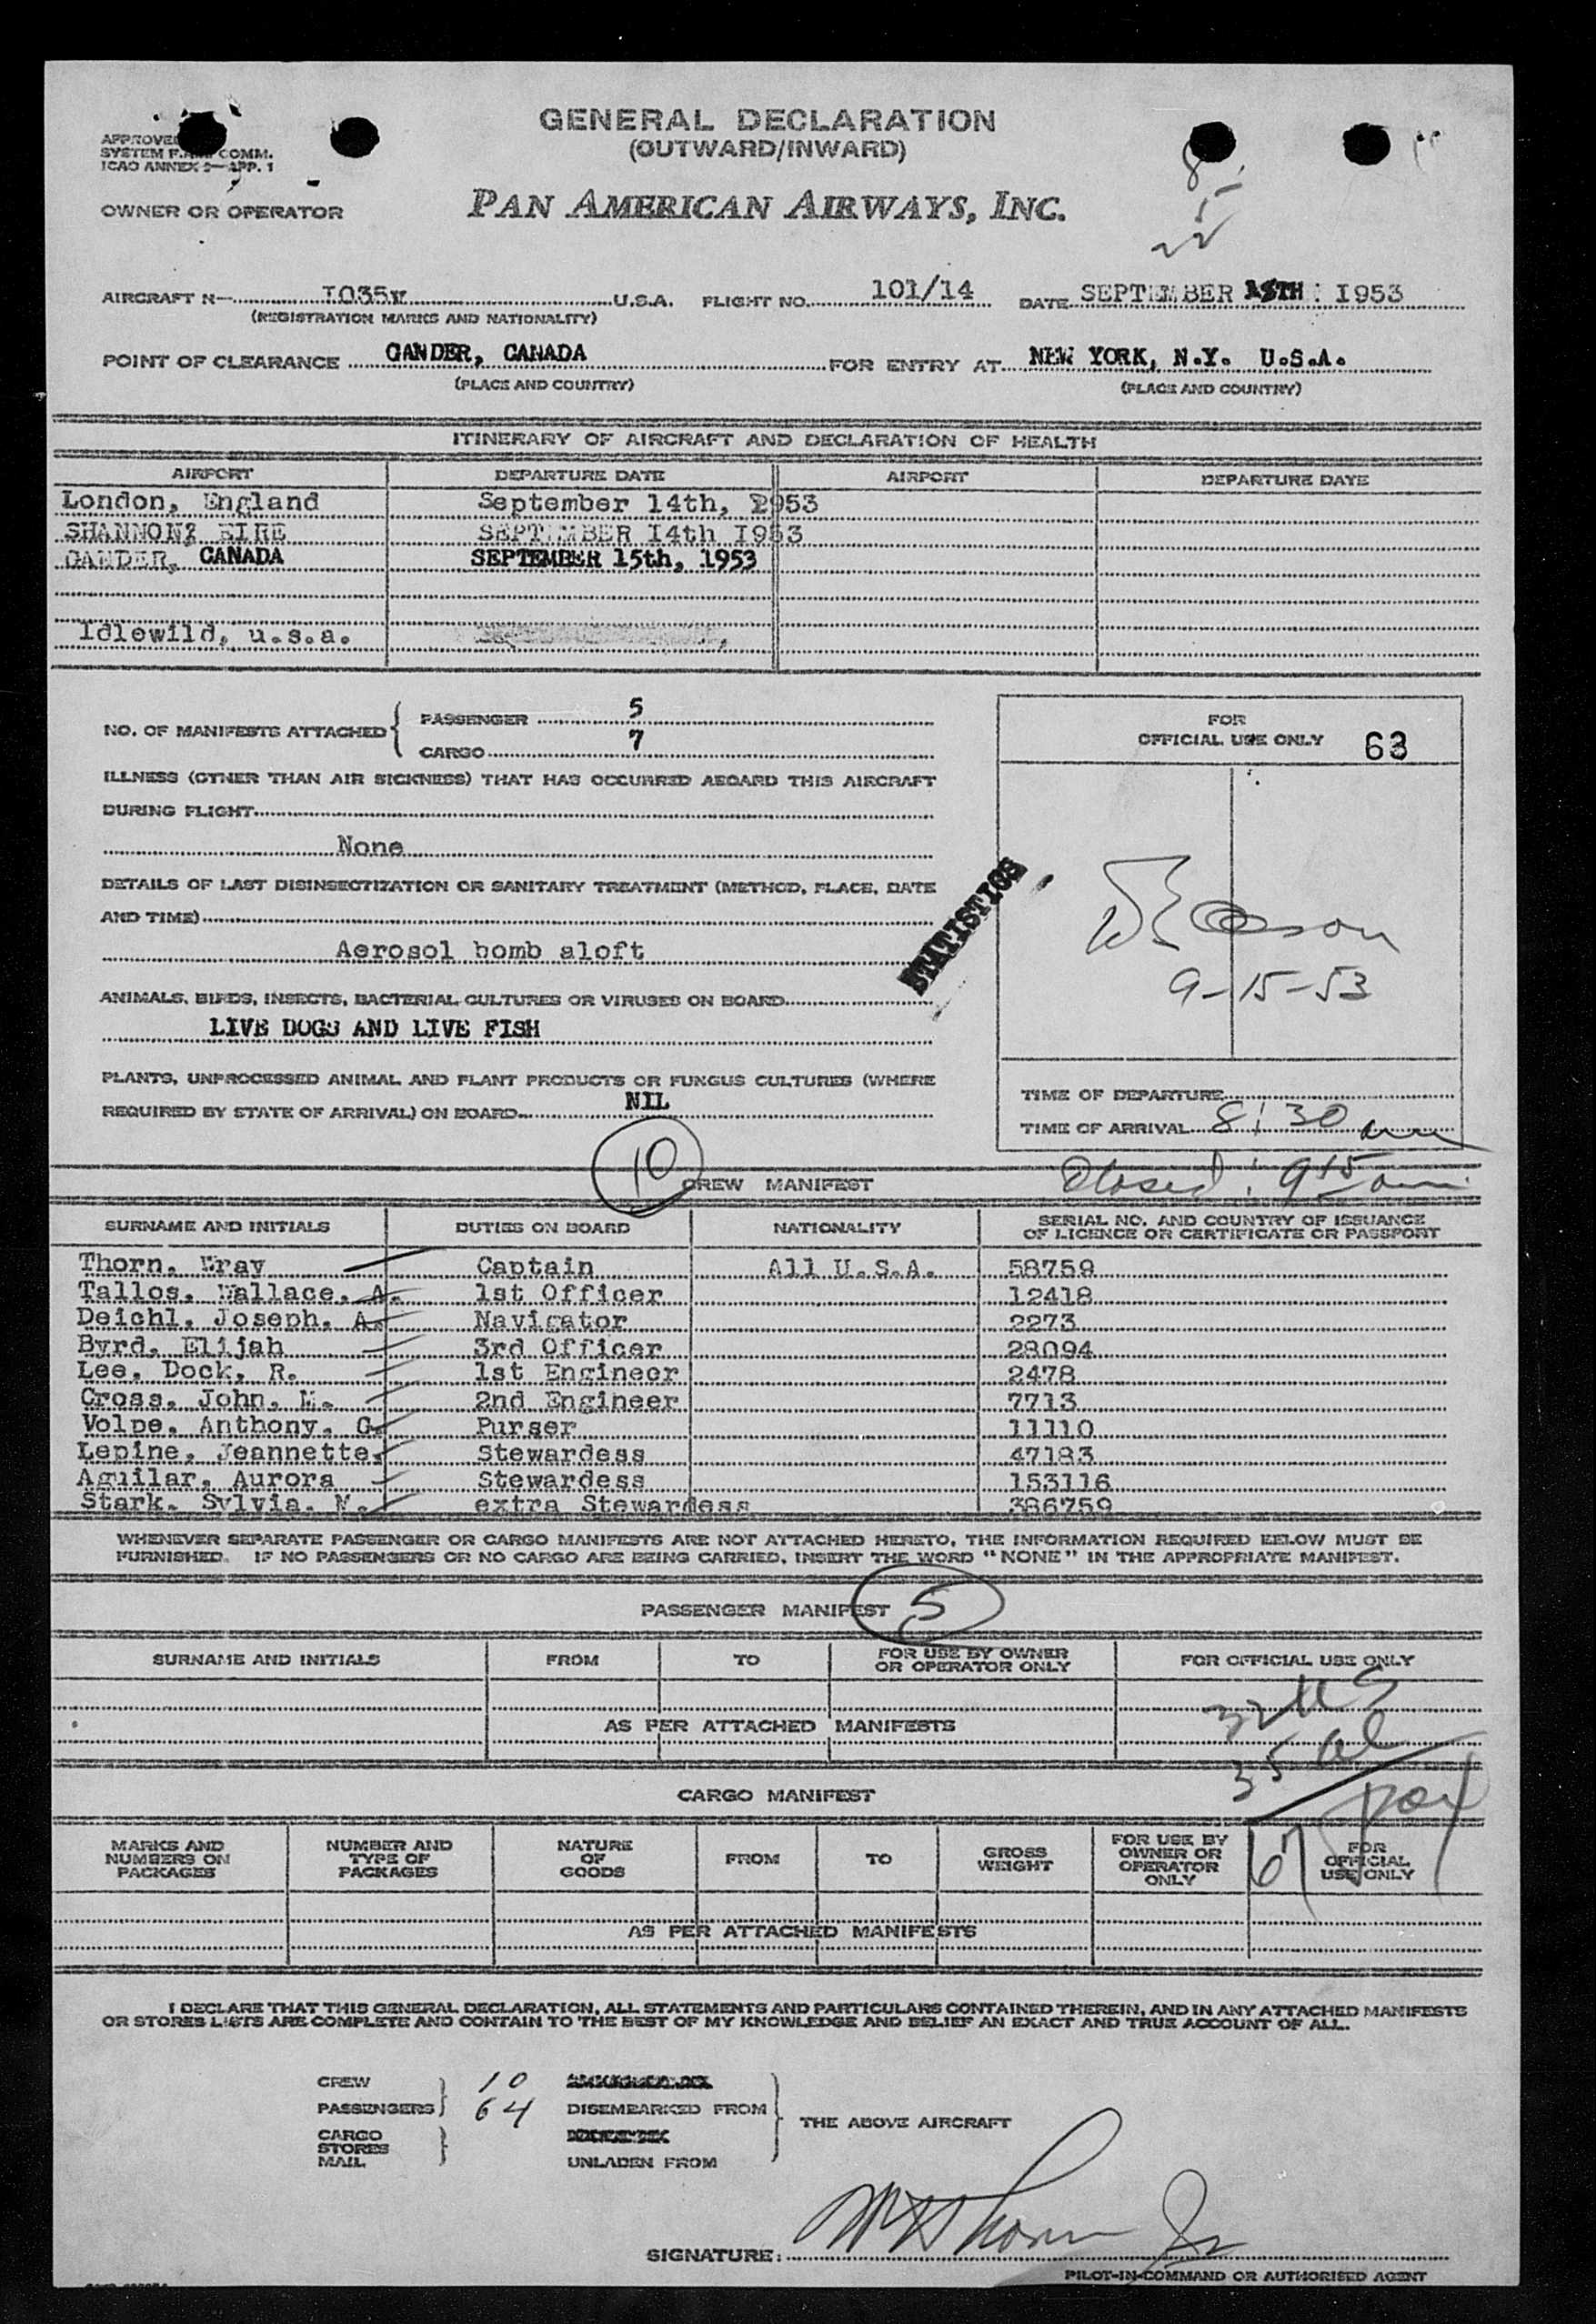 GENERAL DECLARATION
(OUTWARD/INWARD)
APPROVED
SYSTEM F.A.L. COMM.
ICAO ANNEX 9—APP. 1
OWNER OR OPERATOR
PAN AMERICAN AIRWAYS, INC.
AIRCRAFT N— I035V U.S.A. FLIGHT NO. 101/14 DATE SEPTEMBER 15TH: I953
(REGISTRATION MARKS AND NATIONALITY)
POINT OF CLEARANCE GANDER, CANADA FOR ENTRY AT NEW YORK, N.Y. U.S.A.
(PLACE AND COUNTRY) (PLACE AND COUNTRY)
ITINERARY OF AIRCRAFT AND DECLARATION OF HEALTH
AIRPORT DEPARTURE DATE AIRPORT DEPARTURE DATE
London, England September 14th, 1953
SHANNON? EIRE SEPTEMBER I4th I953
GANDER, CANADA SEPTEMBER 15th, 1953
Idlewild, u.s.a.
NO. OF MANIFESTS ATTACHED PASSENGER 5
CARGO 7
FOR
OFFICIAL USE ONLY 63
ILLNESS (OTHER THAN AIR SICKNESS) THAT HAS OCCURRED ABOARD THIS AIRCRAFT
DURING FLIGHT
None
DETAILS OF LAST DISINSECTIZATION OR SANITARY TREATMENT (METHOD, PLACE, DATE
AND TIME)
Aerosol bomb aloft
STATISTICS
9-15-53
ANIMALS, BIRDS, INSECTS, BACTERIAL CULTURES OR VIRUSES ON BOARD
LIVE DOGS AND LIVE FISH
PLANTS, UNPROCESSED ANIMAL AND PLANT PRODUCTS OR FUNGUS CULTURES (WHERE
REQUIRED BY STATE OF ARRIVAL) ON BOARD NIL
TIME OF DEPARTURE
TIME OF ARRIVAL 8:30 am
Closed: 9 15 am
10
CREW MANIFEST
SURNAME AND INITIALS DUTIES ON BOARD NATIONALITY SERIAL NO. AND COUNTRY OF ISSUANCE
OF LICENCE OR CERTIFICATE OR PASSPORT
Thorn, Wray Captain All U.S.A. 58759
Tallos, Wallace, A. 1st Officer 12418
Deichl, Joseph, A. Navigator 2273
Byrd, Elijah 3rd Officer 28094
Lee, Dock, R. 1st Engineer 2478
Cross, John, M. 2nd Engineer 7713
Volpe, Anthony, G. Purser 11110
Lepine, Jeannette, Stewardess 47183
Aguilar, Aurora Stewardess 153116
Stark, Sylvia, N. extra Stewardess 386759
WHENEVER SEPARATE PASSENGER OR CARGO MANIFESTS ARE NOT ATTACHED HERETO, THE INFORMATION REQUIRED BELOW MUST BE
FURNISHED. IF NO PASSENGERS OR NO CARGO ARE BEING CARRIED, INSERT THE WORD "NONE" IN THE APPROPRIATE MANIFEST.
PASSENGER MANIFEST 5
SURNAME AND INITIALS FROM TO FOR USE BY OWNER
OR OPERATOR ONLY FOR OFFICIAL USE ONLY
32 US
AS PER ATTACHED MANIFESTS
35 al
CARGO MANIFEST
67 pax
MARKS AND
NUMBERS ON
PACKAGES NUMBER AND
TYPE OF
PACKAGES NATURE
OF
GOODS FROM TO GROSS
WEIGHT FOR USE BY
OWNER OR
OPERATOR
ONLY FOR
OFFICIAL
USE ONLY
AS PER ATTACHED MANIFESTS
I DECLARE THAT THIS GENERAL DECLARATION, ALL STATEMENTS AND PARTICULARS CONTAINED THEREIN, AND IN ANY ATTACHED MANIFESTS
OR STORES LISTS ARE COMPLETE AND CONTAIN TO THE BEST OF MY KNOWLEDGE AND BELIEF AN EXACT AND TRUE ACCOUNT OF ALL.
CREW 10
PASSENGERS 64 DISEMBARKED FROM
THE ABOVE AIRCRAFT
CARGO
STORES
MAIL UNLADEN FROM
SIGNATURE: W Thorn Jr
PILOT-IN-COMMAND OR AUTHORISED AGENT